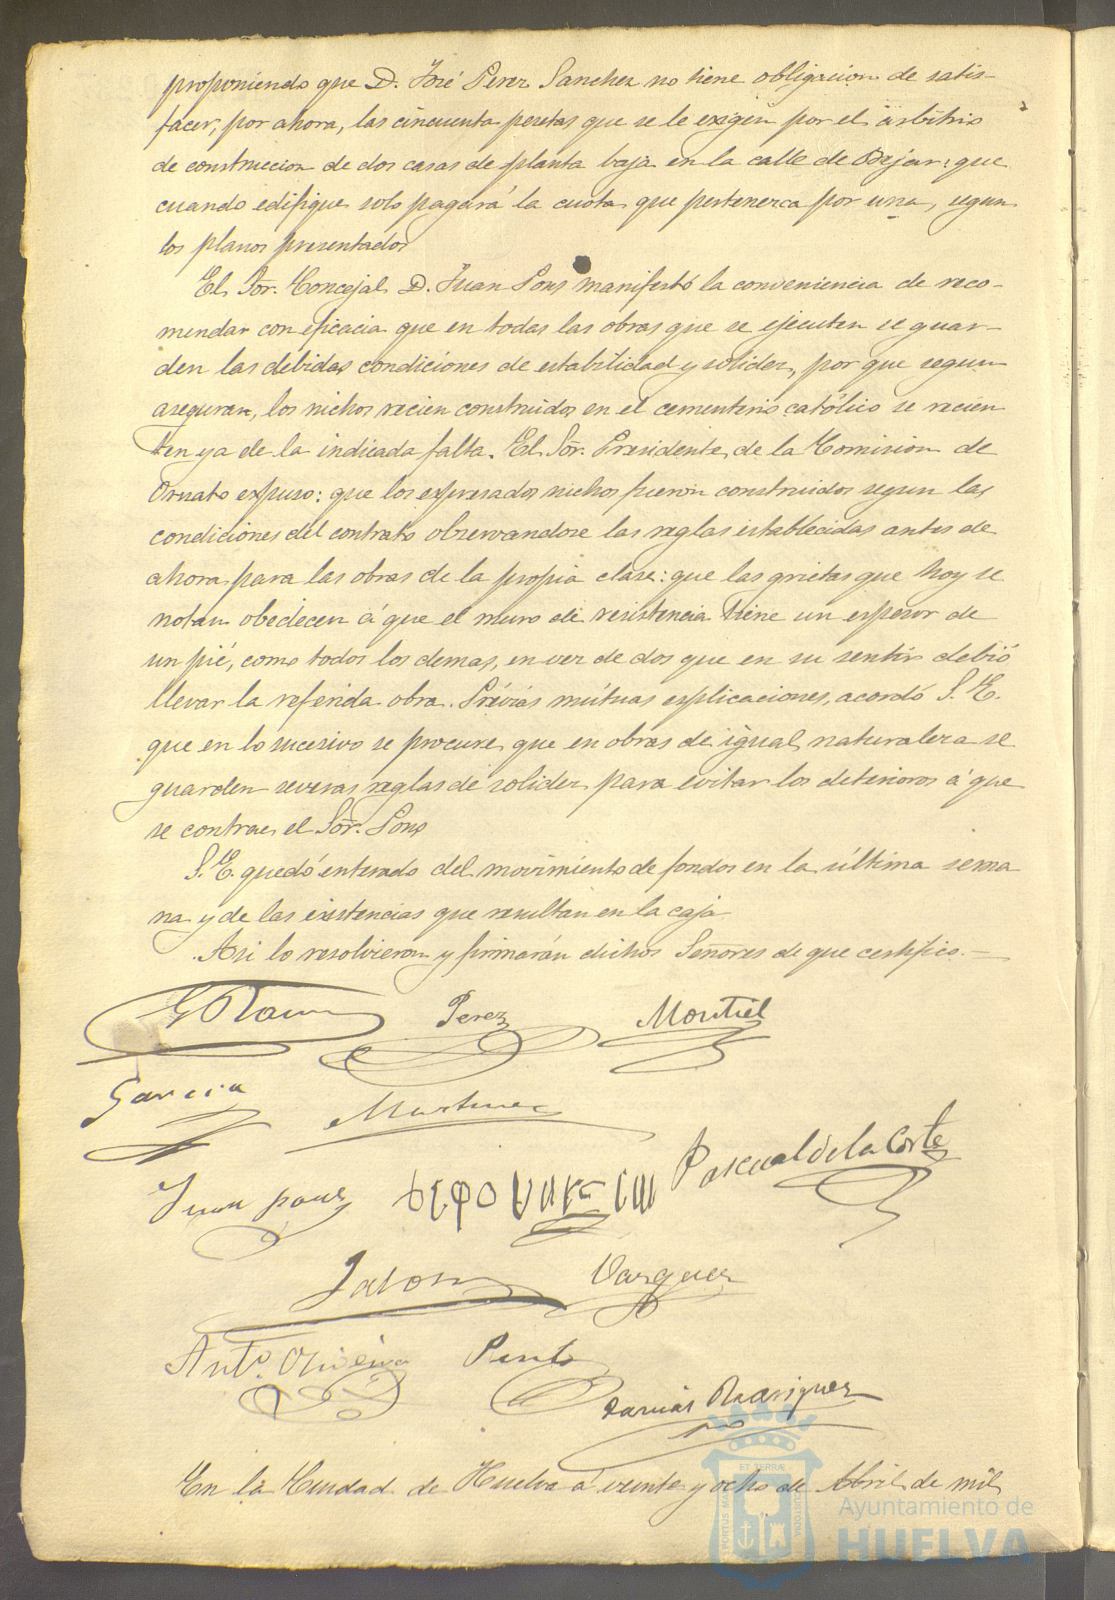 proponiendo que D. José Perez Sanchez no tiene obligacion de satis-
facer, por ahora, las cincuenta pesetas que se le exigen por el arbitrio
de construccion de dos casas de planta baja en la calle de Bejar: que
cuando edifique solo pagará la cuota que pertenezca por una, segun
los planos presentados
El Sor. Concejal D. Juan Pons manifestó la conveniencia de reco-
mendar con eficacia que en todas las obras que se ejecuten se guar-
den las debidas condiciones de estabilidad y solidez, por que segun
aseguran, los nichos recien construidos en el cementerio católico se recien
ten ya de la indicada falta. El Sor. Presidente de la Comision de
Ornato expuso: que los expresados nichos fueron construidos segun las
condiciones del contrato observandose las reglas establecidas antes de
ahora para las obras de la propia clase: que las grietas que hoy se
notan obedecen á que el muro de resistencia tiene un espesor de
un pié, como todos los demas, en vez de dos que en su sentir debió
llevar la referida obra. Prévias mútuas esplicaciones, acordó S. E.
que en lo sucesivo se procure que en obras de igual naturaleza se
guarden severas reglas de solidez para evitar los deterioros á que
se contrae el Sor. Pons
S. E. quedó enterado del movimiento de fondos en la última sema
na y de las existencias que resultan en la caja
Asi lo resolvieron y firmarán dichos Señores de que certifico.—
Perez Montiel
Garcia Martinez
Juan Pons Pascual de la Corte
Vazquez
Anto. Oliveira Pinto
Rodriguez
En la Ciudad de Huelva á veinte y ocho de Abril de mil
ET TERRÆ
PORTUS MARIS
CUSTODIA
Ayuntamiento de
HUELVA